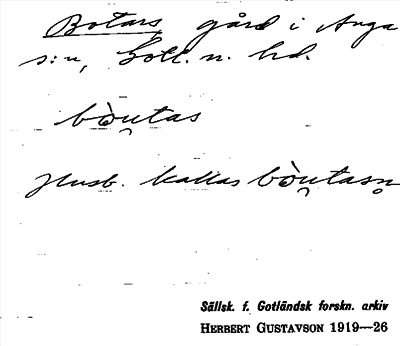 Botars, gård i Anga
s:n, Gotl. n. hd.
bòu̯tas
Husb. kallas bòu̯tasn̥
Sällsk. f. Gotländsk forskn. arkiv
HERBERT GUSTAVSON 1919—26